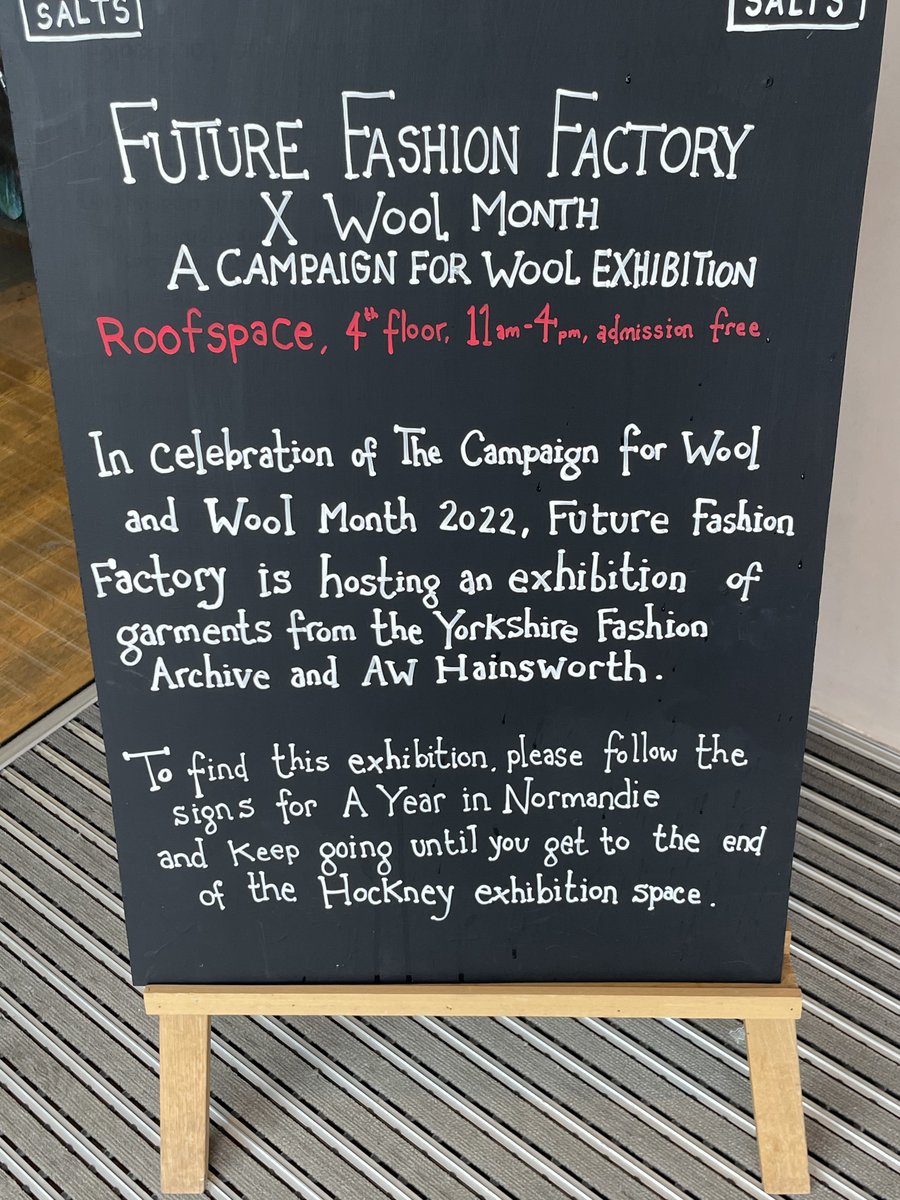 SALTS
SALTS
FUTURE FASHION FACTORY
X WOOL MONTH
A CAMPAIGN FOR WOOL EXHIBITION
Roofspace, 4th floor, 11am-4pm, admission free.
In celebration of The Campaign for Wool
and Wool Month 2022, Future Fashion
Factory is hosting an exhibition of
garments from the Yorkshire Fashion
Archive and AW Hainsworth.
To find this exhibition, please follow the
signs for A Year in Normandie
and keep going until you get to the end
of the Hockney exhibition space.